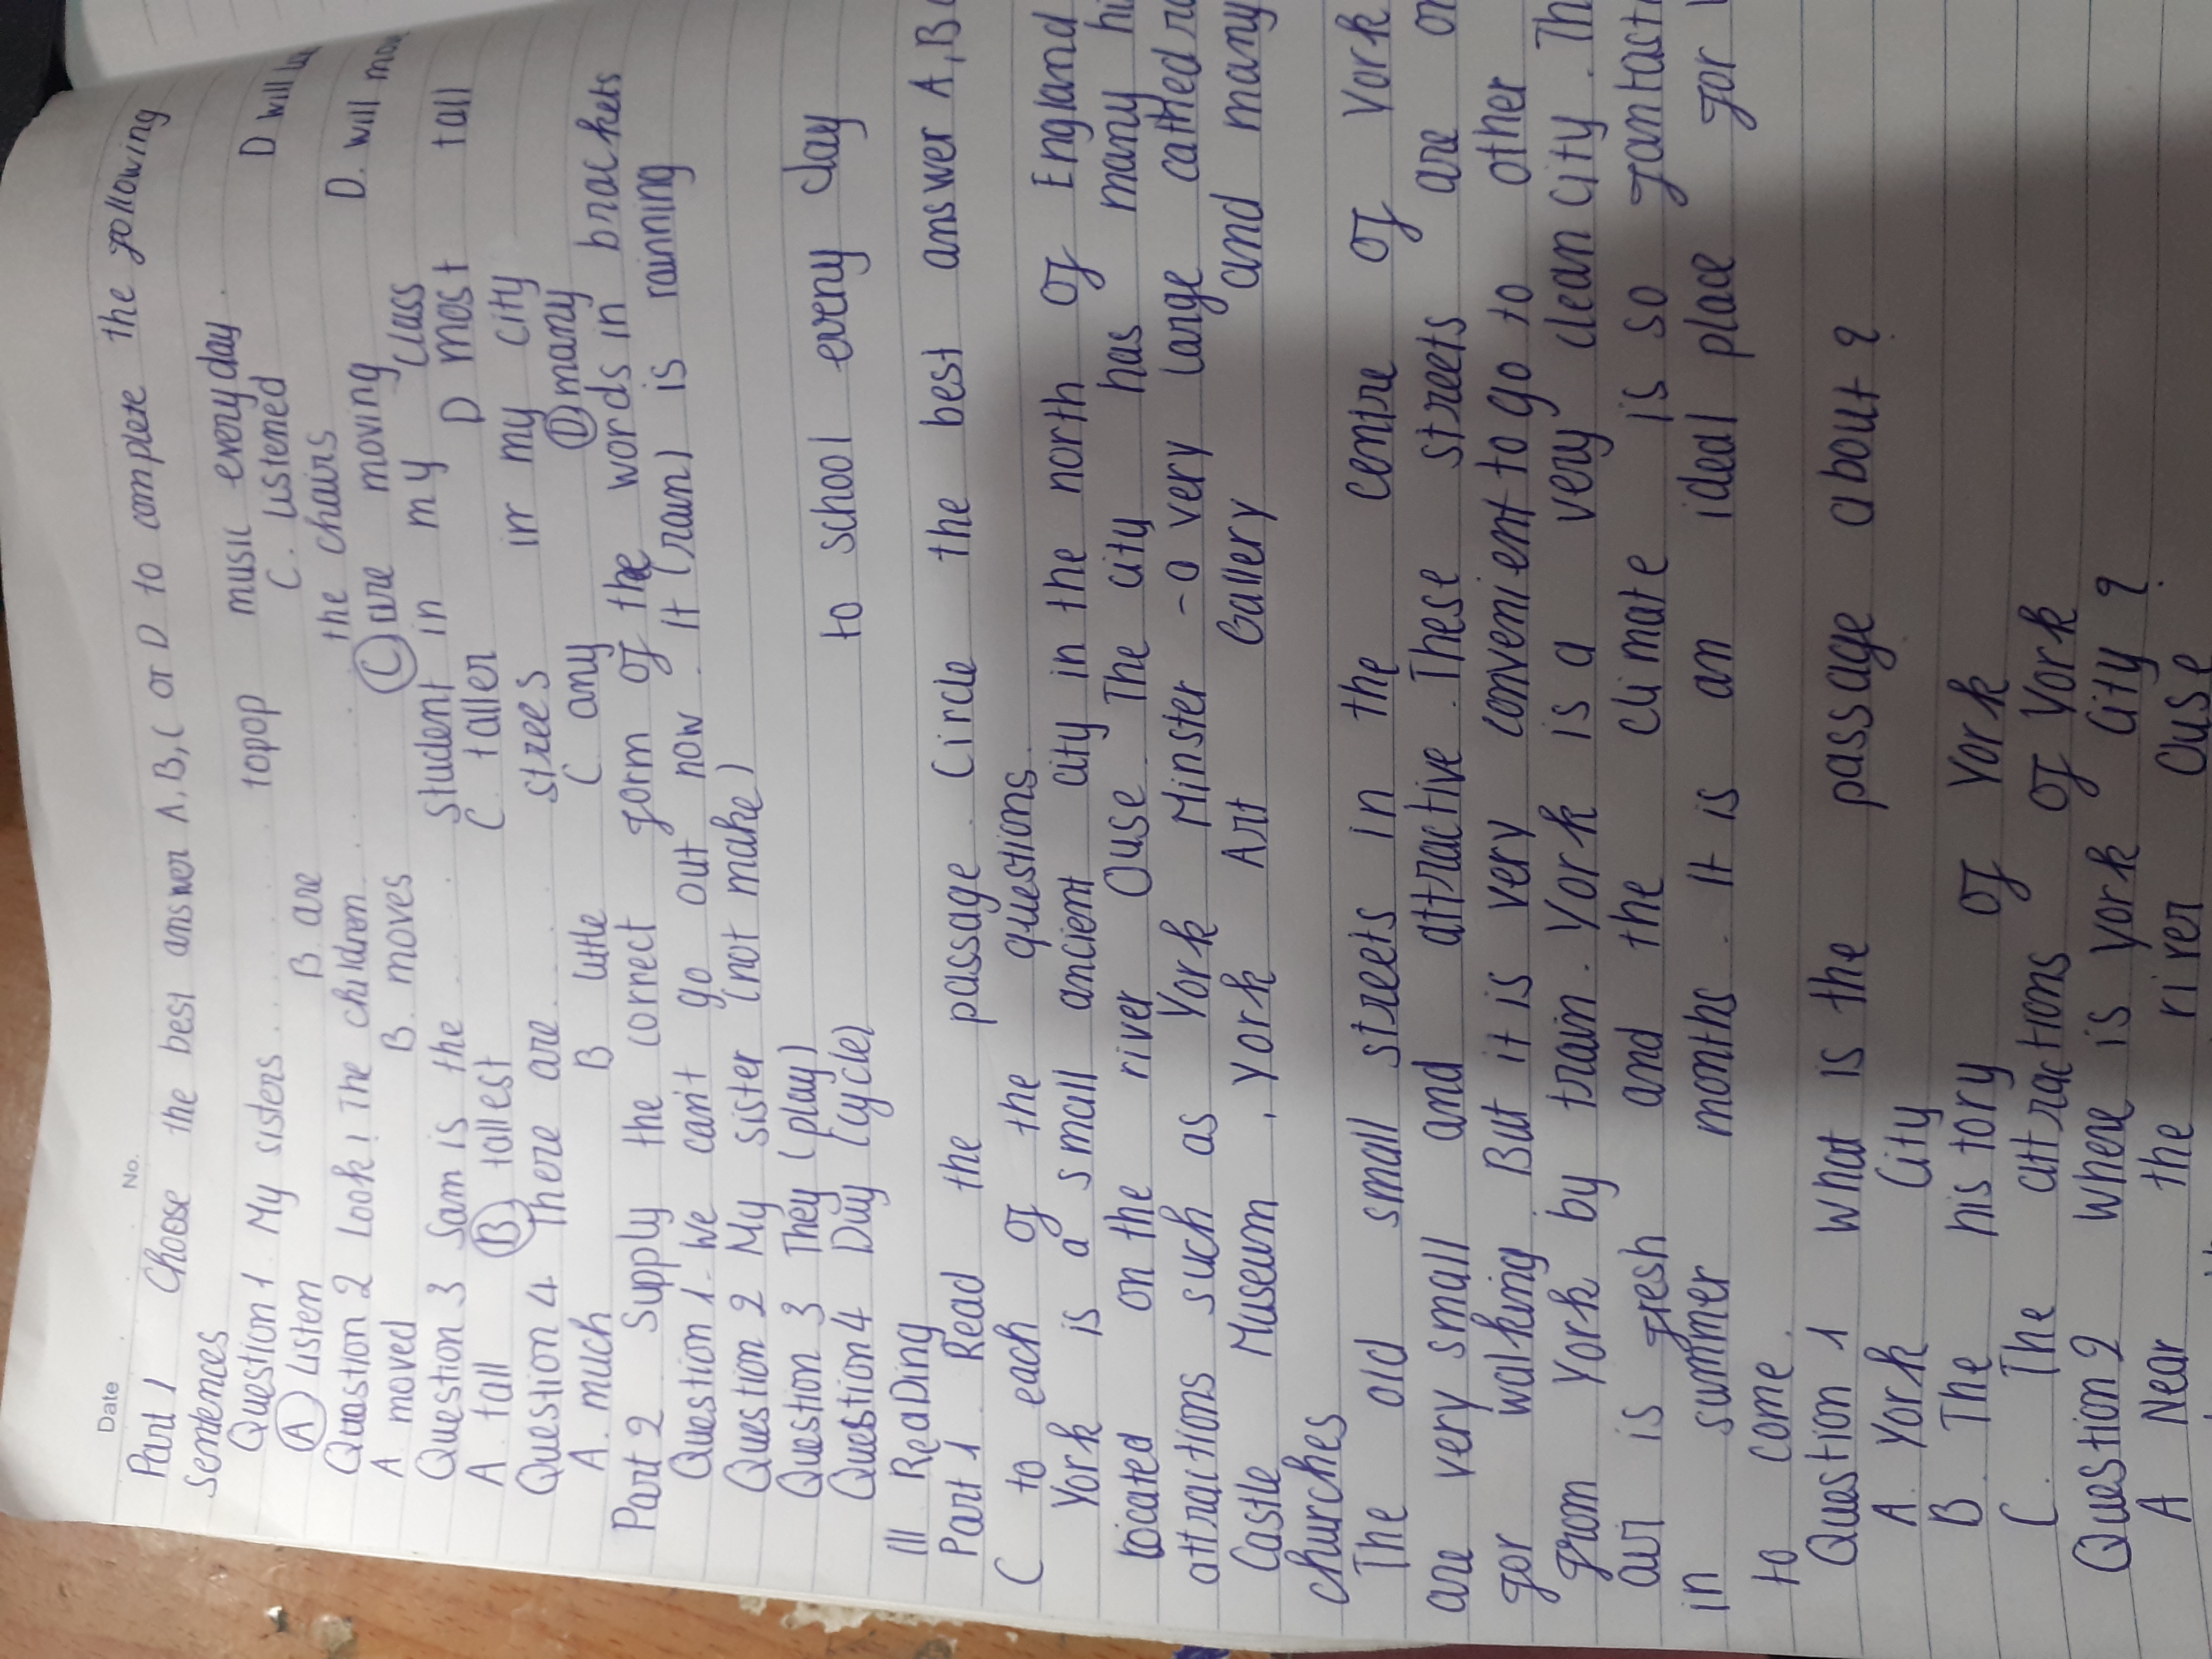 Date No.
Part 1 Choose the best answer A, B, C or D to complete the following
sentences
Question 1. My sisters ........ topop music everyday.
A Listen B are C. listened D will
Question 2 Look! The children ........ the chairs
A moved B. moves C are moving D. will
Question 3 Sam is the ..... student in my class
A. tall B tallest C taller D most tall
Question 4 There are ..... strees in my city
A. much B little C any D many
Part 2 Supply the correct form of the words in brackets
Question 1. We can't go out now. It (rain) is rainning
Question 2 My sister (not make)
Question 3 They (play)
Question 4 Duy (cycle) to school every day
III ReaDing
Part 1 Read the passage. Circle the best answer A, B
C to each of the questions.
York is a small ancient city in the north of England
located on the river Ouse. The city has many
attractions such as York Minster - a very large
Castle Museum, York Art Gallery and many
churches
The old small streets in the centre of York
are very small and attractive. These streets are
for walking. But it is very convenient to go to other
from York by train. York is a very clean city.
air is fresh and the climate is so
in summer months. It is an ideal place for
to come.
Question 1 What is the passage about?
A. York City
B The history of York
C. The attractions of York
Question 2 where is York City?
A Near the river Ouse